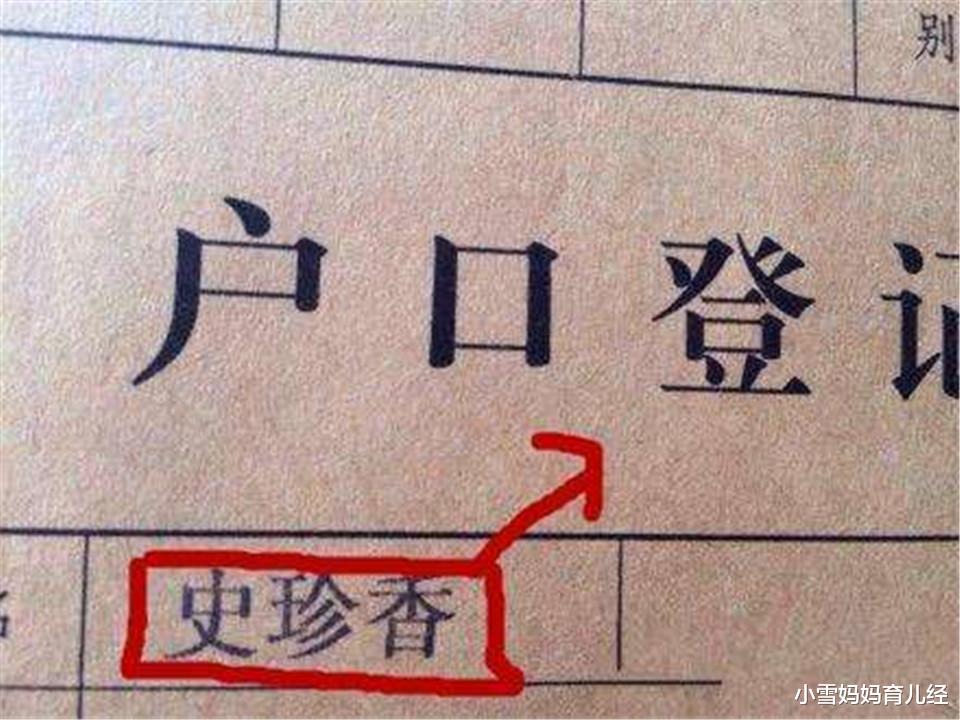 别
户口登记
史珍香
小雪妈妈育儿经